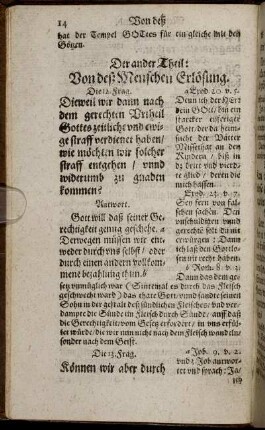 14 Von deß
hat der Tempel GOttes für ein gleiche mit den
Götzen.
Der ander Theil:
Von deß Menschen Erlösung.
Die 12. Frag.
Dieweil wir dann nach
dem gerechten Urtheil
Gottes zeitliche und ewi-
ge straff verdienet haben/
wie möchten wir solcher
straff entgehen / vnnd
widerumb zu gnaden
kommen?
Antwort.
Gott will daß seiner Ge-
rechtigkeit genug geschehe. a
Derwegen müssen wir ent-
weder durch uns selbst / oder
durch einen andern vollkom-
mene bezahlung thun. b
a Exod. 20. v. 5.
Denn ich der HErr
dein Gott / bin ein
starcker eifferiger
Gott / der da heim-
suche der Vätter
Missethat an den
Kindern / biß in
das dritte und vierte
glied / deren die
mich hassen.
Exod. 23. v. 7.
Sey fern von fal-
schen sachen. Den
unschuldigen vnd
gerechten solt du nit
erwürgen: Dann
ich laß den Gottlo-
sen nit recht haben.
b Rom. 8. v. 3.
Dann das dem ge-
setz unmüglich war (Sintemal es durch das Fleisch
geschwecht ward) das thate Gott / vnnd sandte seinen
Sohn in der gestalt deß sündlichen Fleisches / und ver-
dampte die Sünde im Fleisch durch Sünde / auff daß
die Gerechtigkeit / vom Gesetz erfordert / in uns erfül-
let würde / die wir nun nicht nach dem Fleisch wandlen /
sonder nach dem Geist.
Die 13. Frag.
Können wir aber durch
a Job. 9. v. 2.
und 3. Job antwor-
tet und sprach: Ja /
ich